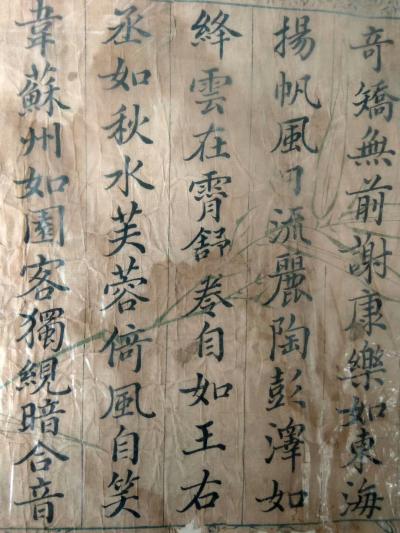 奇矯無前謝康樂如東海
揚帆風日流麗陶彭澤如
絳雲在霄舒卷自如王右
丞如秋水芙蓉倚風自笑
韋蘇州如園客獨繭暗合音